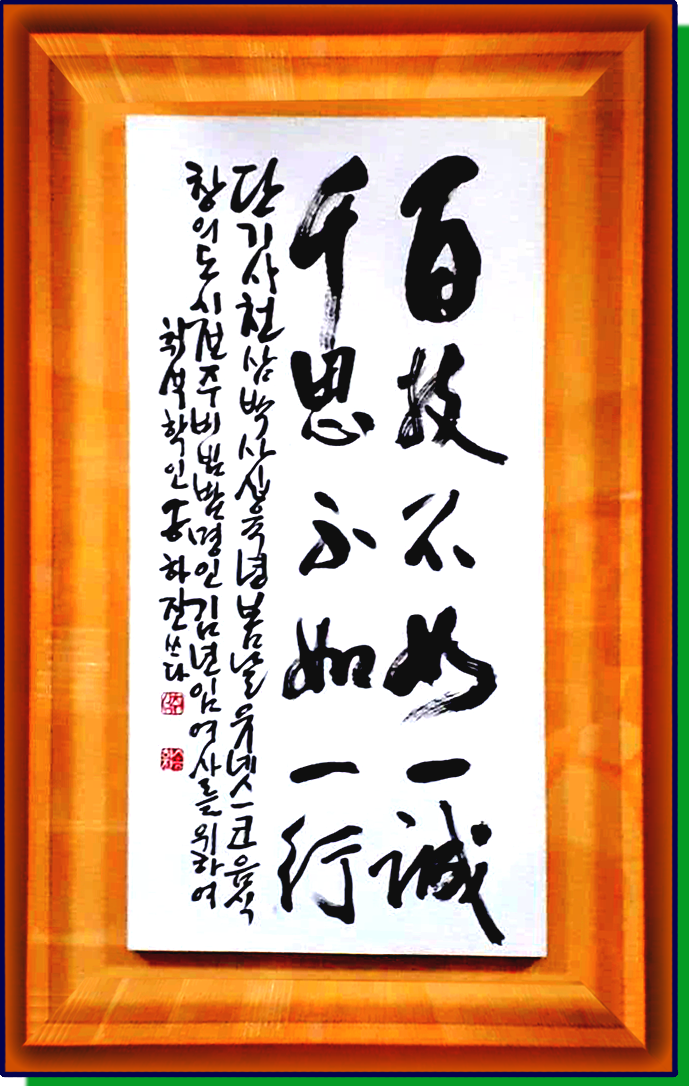 百技不如一誠
千思不如一行
단기사천삼백사십육년봄날유네스코음식
창의도시전주비빔밥명인김년임여사를위하여
취석학인송하진쓰다